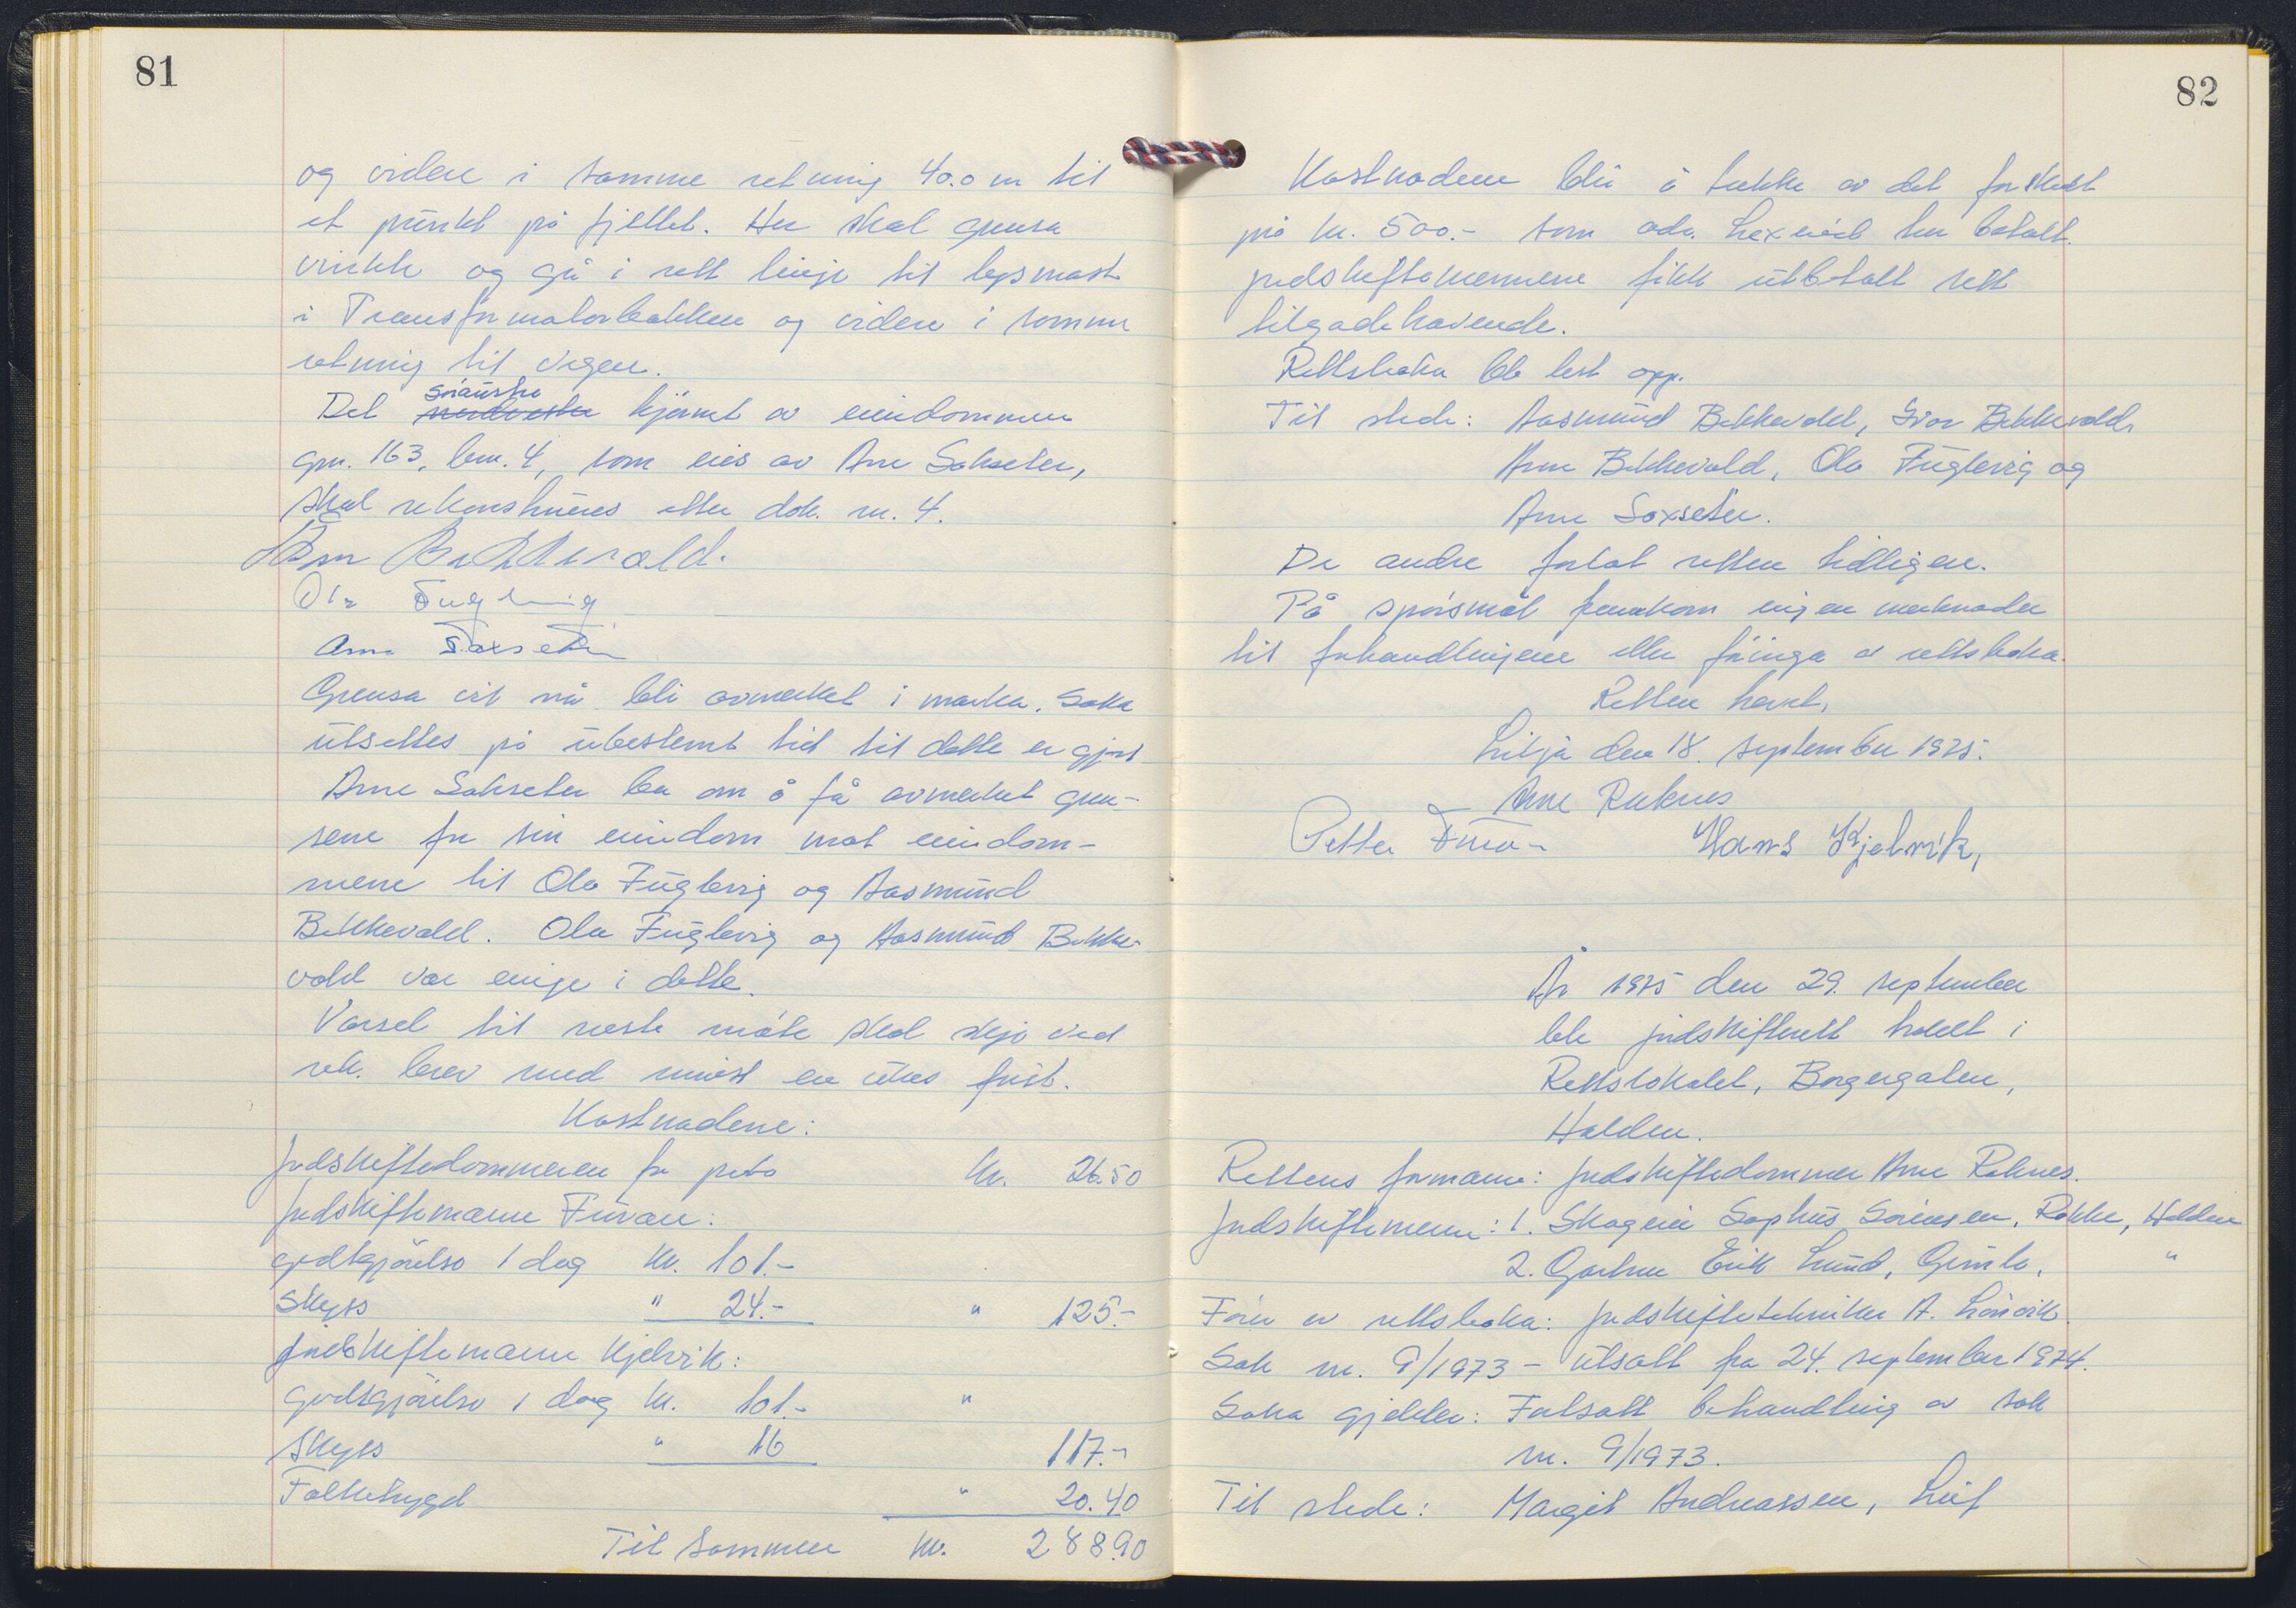 81
og videre i samme retning 40.0 m til
et punkt på fjellet. Her skal grensa
vinkle og gå i rett linje til lysmast
i Transformatorbakken og videre i samme
retning til vegen.
søraustre
Det nordvestre hjørnet av eiendommen
gnr. 163, bnr. 4, som eies av Arne Sakseter,
skal rekonstrueres etter dok. nr. 4.
Bekkevold.
Ola Fuglevig
Arne Saxseter
Grensa vil nå bli avmerket i marka. Saka
utsettes på ubestemt tid til dette er gjort
Arne Sakseter ba om å få avmerket gren-
sene for sin eiendom mot eiendom-
mene til Ola Fuglevig og Aasmund
Bekkevold. Ola Fuglevig og Aasmund Bekke-
vold var enige i dette.
Varsel til neste møte skal skje ved
rek. brev med minst en ukes frist.
Kostnadene:
Jordskiftedommeren for porto kr. 26.50
Jordskiftemann Furan:
godtgjørelse 1 dag kr. 101.-
Skyss " 24.- " 125.-
Jordskiftemann Kjelvik:
godtgjørelse 1 dag kr. 101.- "
Skyss " 16 117.-
Folketrygd " 20.40
Til sammen kr. 288.90
82
Kostnadene blir å trekke av det forskott
på kr. 500.- som adv. har betalt.
Jordskiftemennene fikk utbetalt sitt
tilgodehavende.
Rettsboka ble lest opp.
Til stede: Aasmund Bekkevold, Ivar Bekkevold,
Arne Bekkevold, Ola Fuglevig og
Arne Saxseter.
De andre forlot retten tidligere.
På spørsmål framkom ingen merknader
til forhandlingene eller føringa av rettsboka.
Retten hevet,
den 18. september 1975.
Arne Reknes
Petter Hans Kjelvik,
År 1975 den 29. september
ble jordskifterett holdt i
Rettslokalet, Borgergaten,
Halden.
Rettens formann: Jordskiftedommer Arne Reknes.
Jordskiftemenn: 1. Skogeier Sophus Sørensen, Rokke, Halden
2. Gartner Erik Lund, Gimle, "
Fører av rettsboka: Jordskiftetekniker A. Lønvik.
Sak nr. 9/1973 - utsatt fra 24. september 1974.
Saka gjelder: Fortsatt behandling av sak
nr. 9/1973.
Til stede: Margit Andreassen, Leif